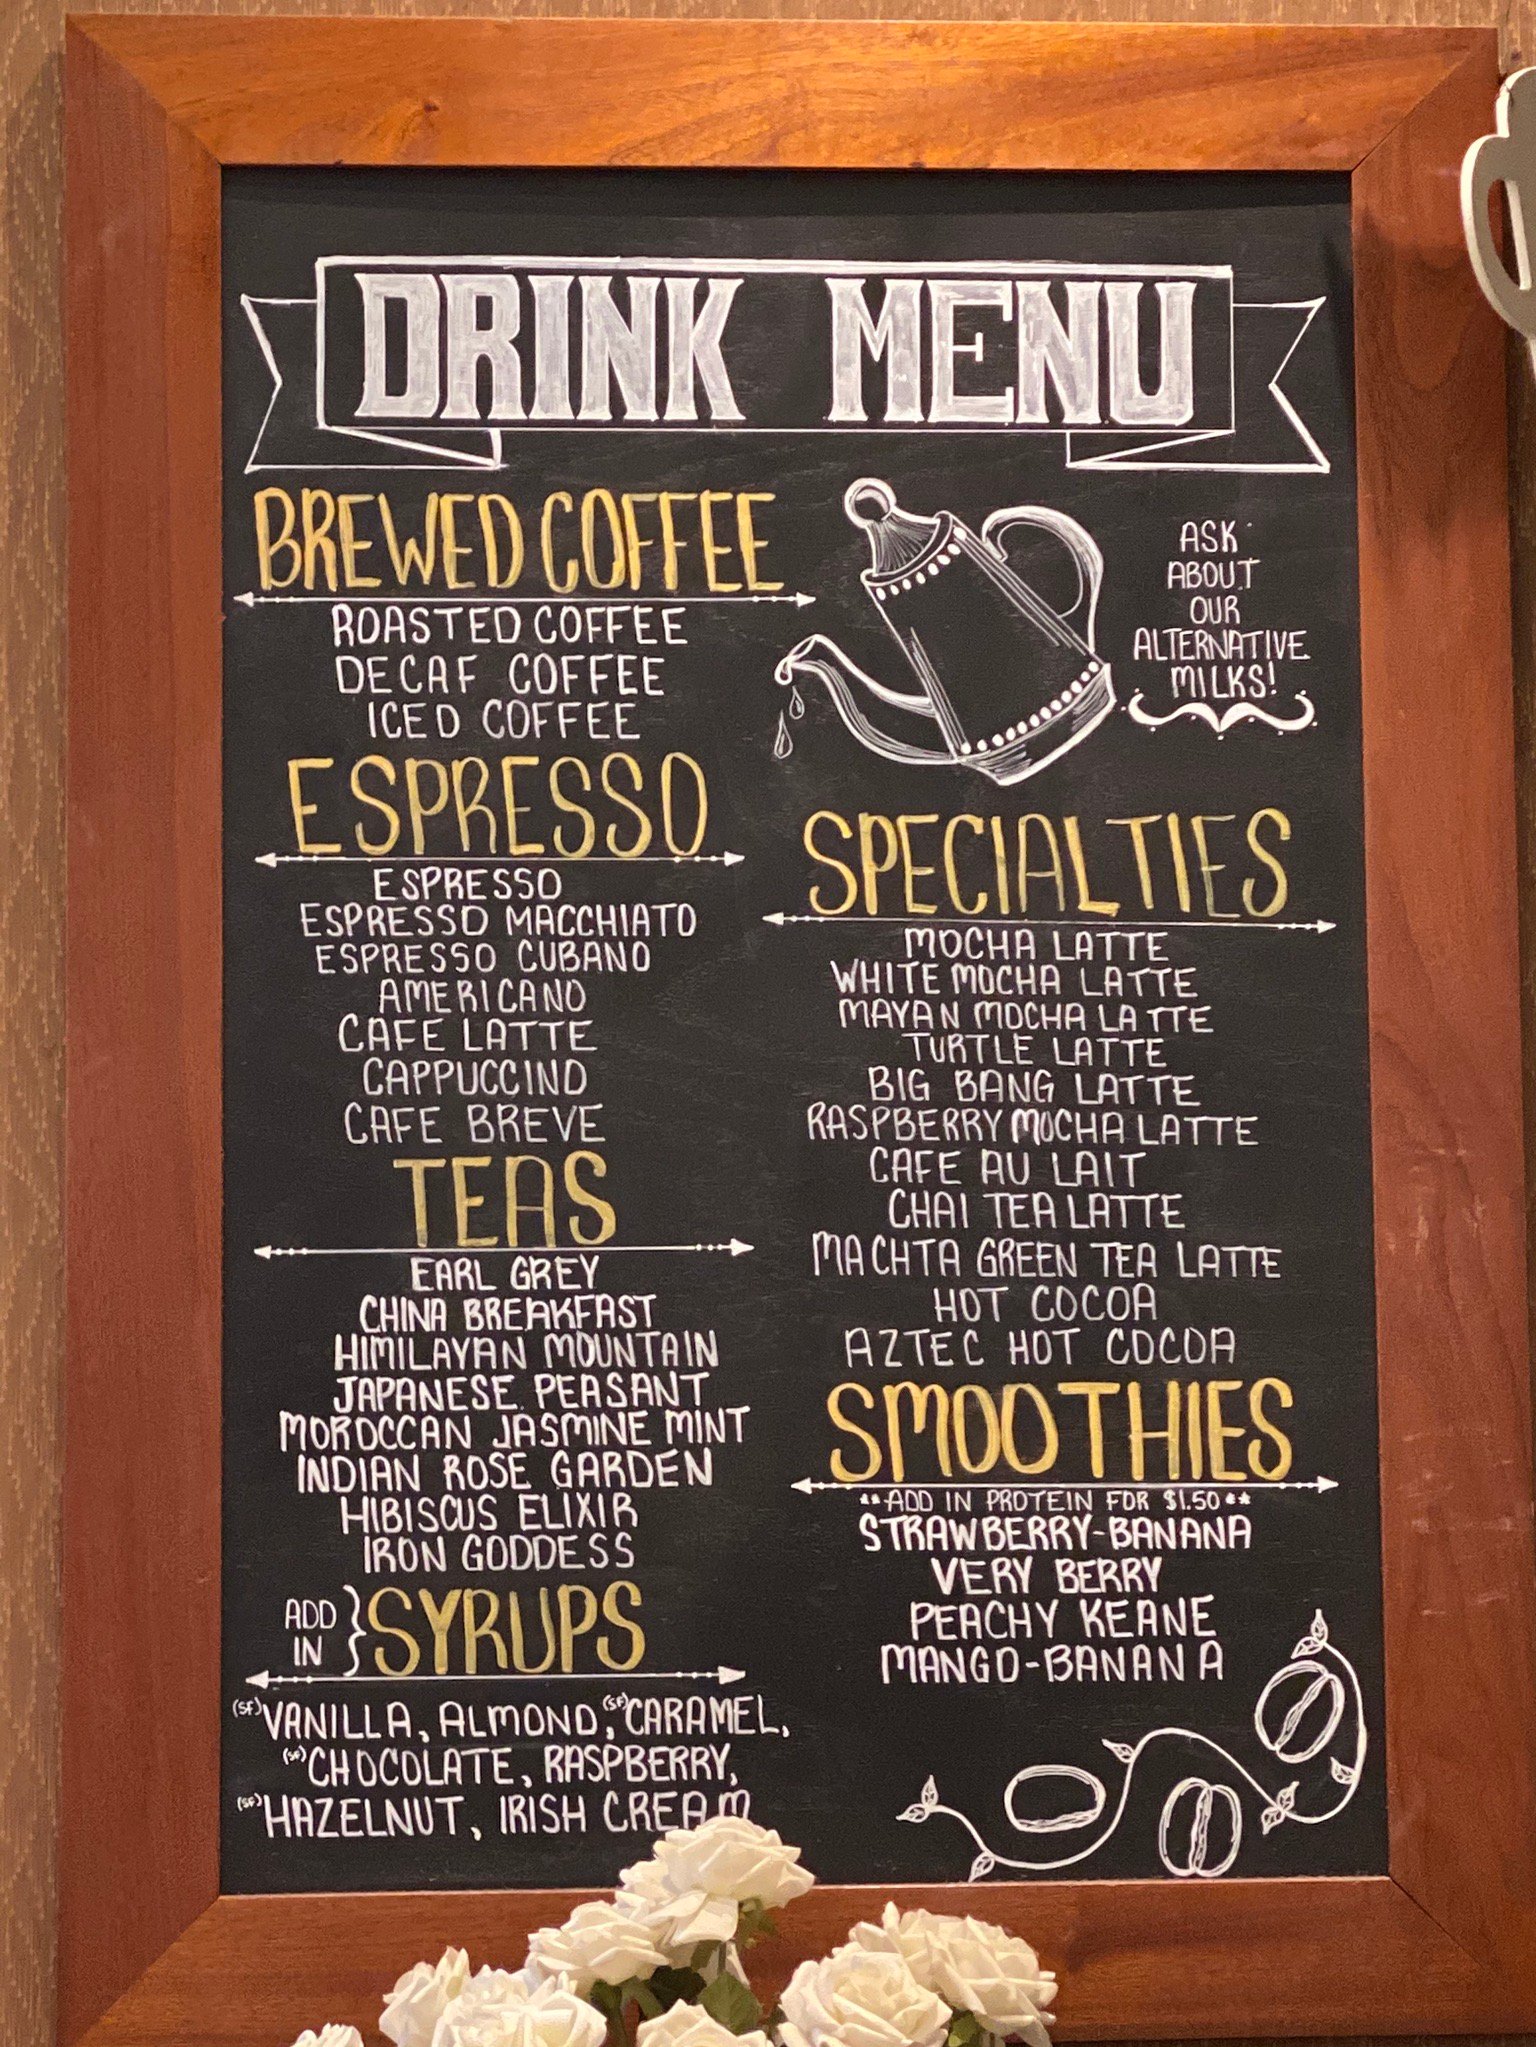 DRINK MENU
BREWED COFFEE
ROASTED COFFEE
DECAF COFFEE
ICED COFFEE
ASK
ABOUT
OUR
ALTERNATIVE
MILKS!
ESPRESSO
ESPRESSO
ESPRESSO MACCHIATO
ESPRESSO CUBANO
AMERICANO
CAFE LATTE
CAPPUCCINO
CAFE BREVE
TEAS
EARL GREY
CHINA BREAKFAST
HIMILAYAN MOUNTAIN
JAPANESE PEASANT
MOROCCAN JASMINE MINT
INDIAN ROSE GARDEN
HIBISCUS ELIXIR
IRON GODDESS
ADD IN } SYRUPS
(SF) VANILLA, ALMOND, (SF) CARAMEL,
(SF) CHOCOLATE, RASPBERRY,
(SF) HAZELNUT, IRISH CREAM
SPECIALTIES
MOCHA LATTE
WHITE MOCHA LATTE
MAYAN MOCHA LATTE
TURTLE LATTE
BIG BANG LATTE
RASPBERRY MOCHA LATTE
CAFE AU LAIT
CHAI TEA LATTE
MACHTA GREEN TEA LATTE
HOT COCOA
AZTEC HOT COCOA
SMOOTHIES
**ADD IN PROTEIN FOR $1.50**
STRAWBERRY-BANANA
VERY BERRY
PEACHY KEANE
MANGO-BANANA